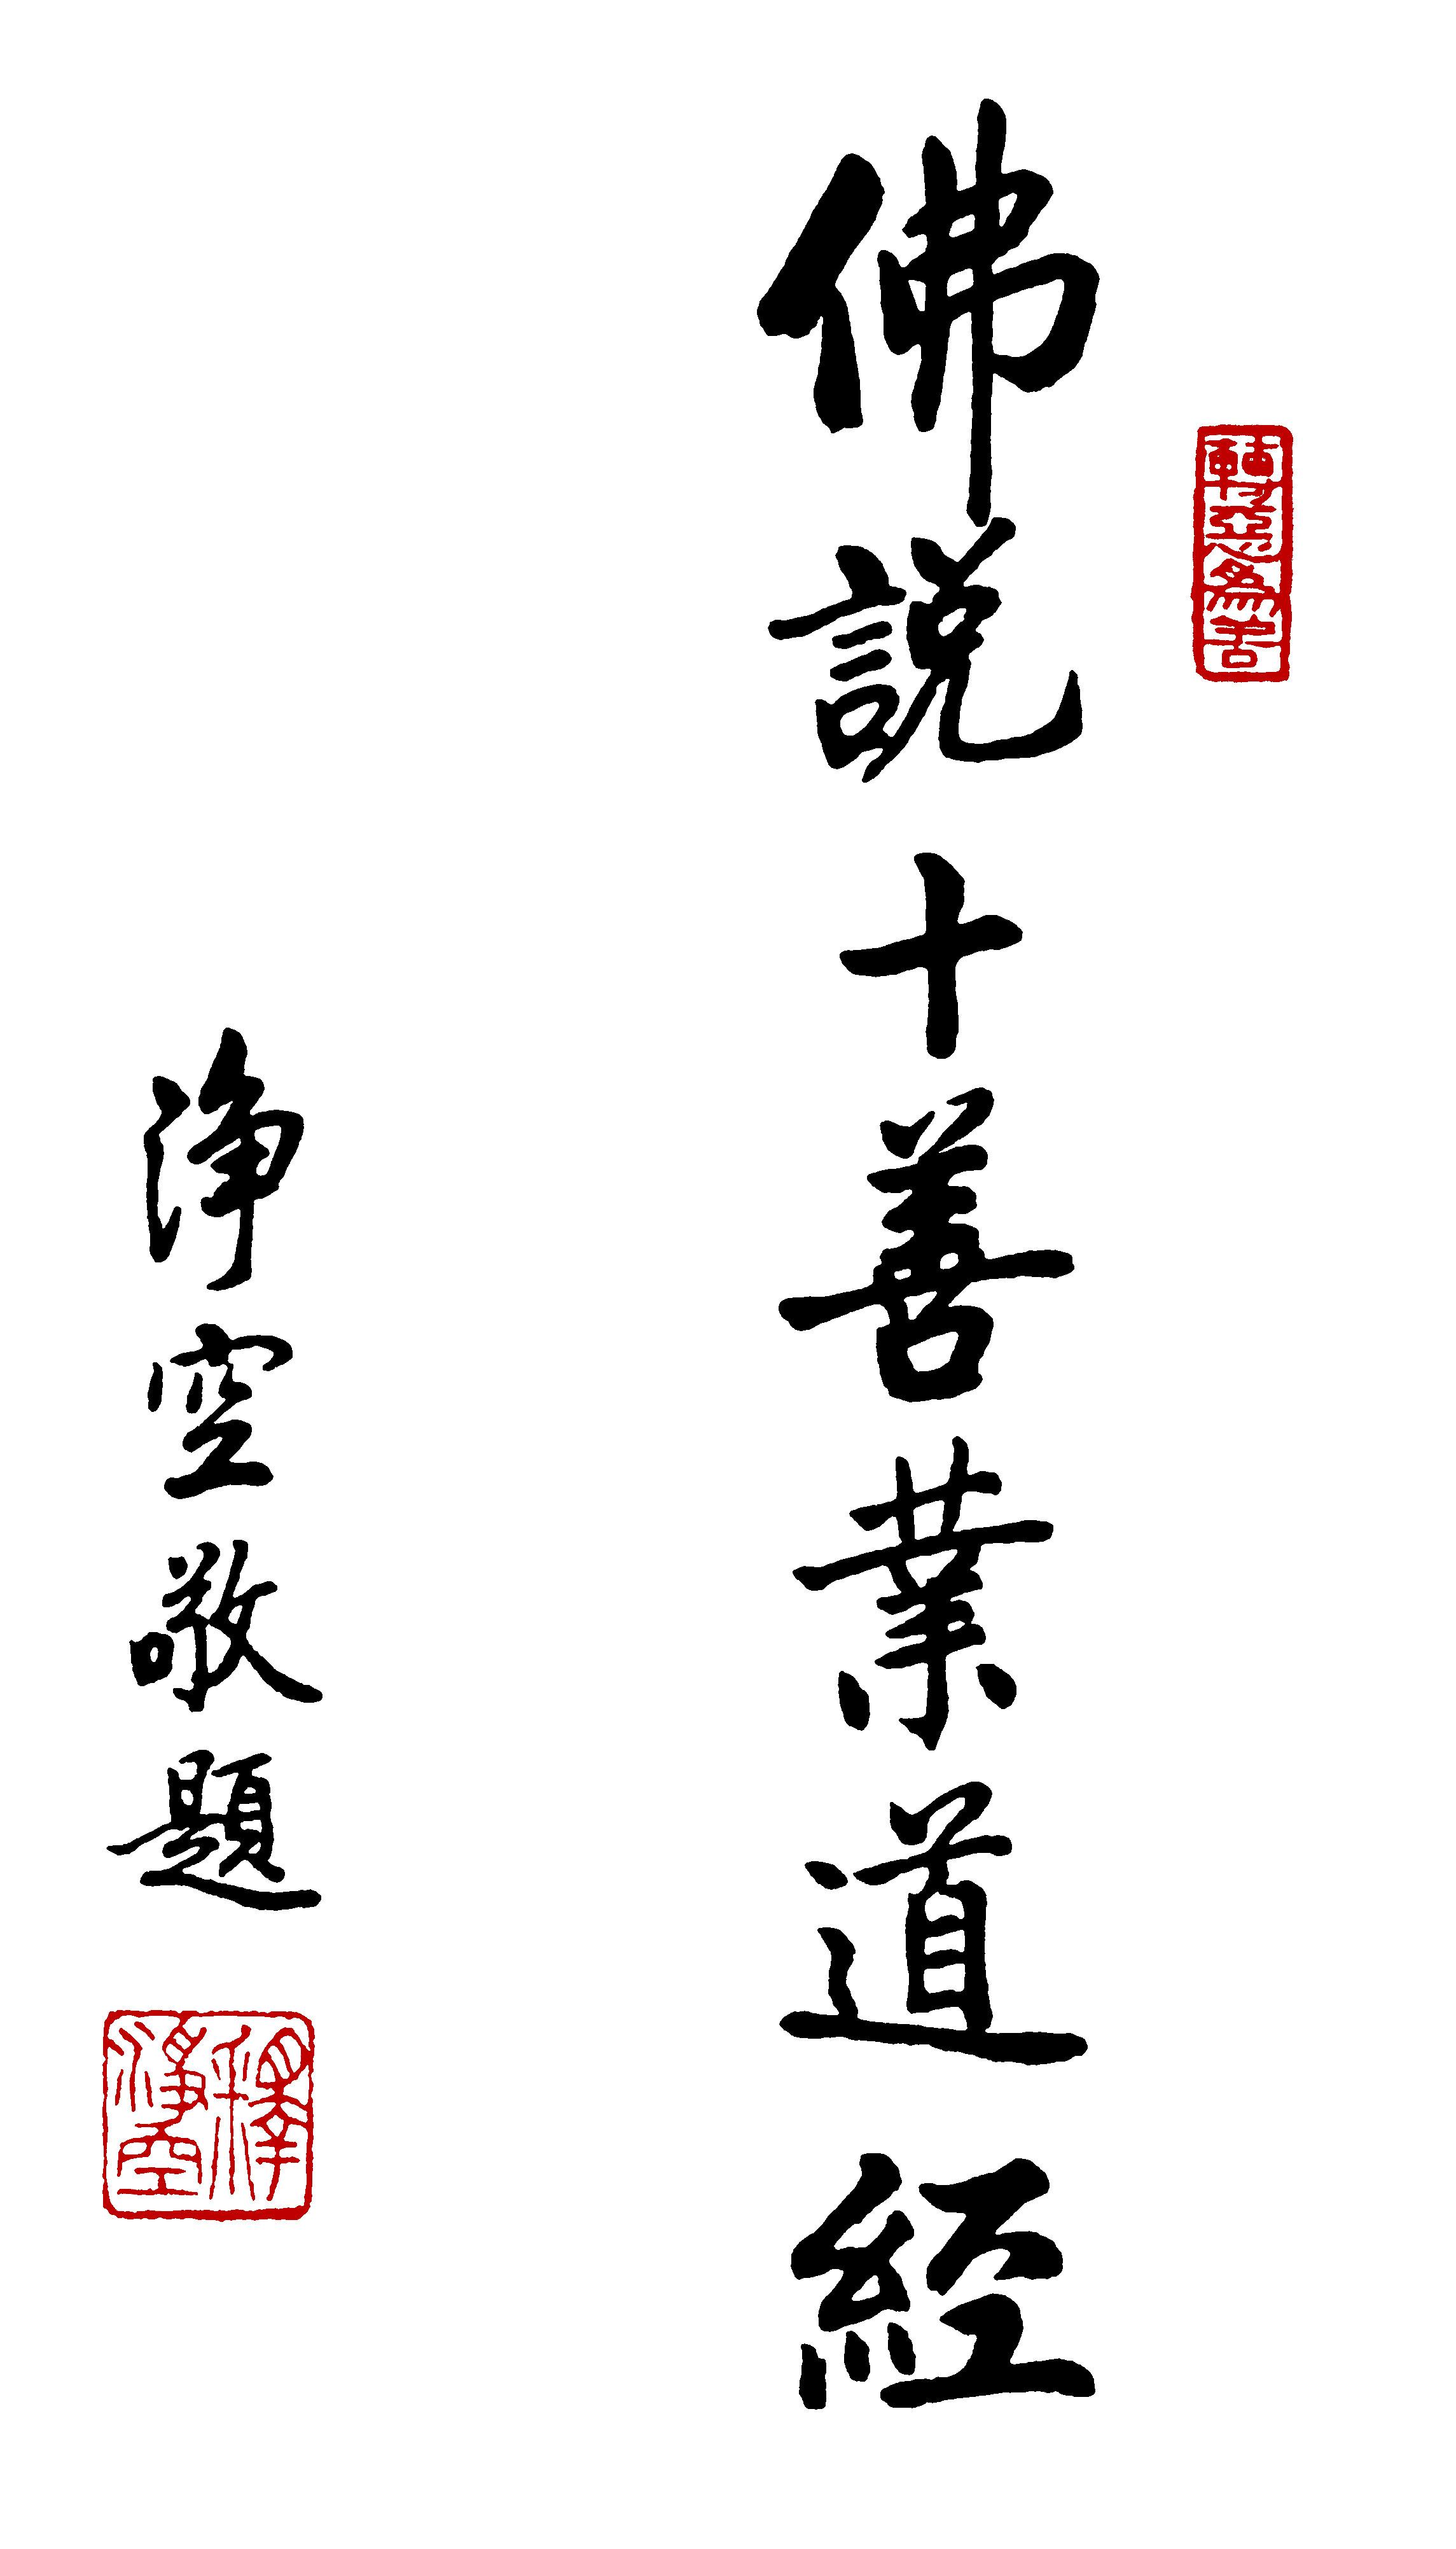 轉惡為善
佛說十善業道經
淨空敬題
釋淨空